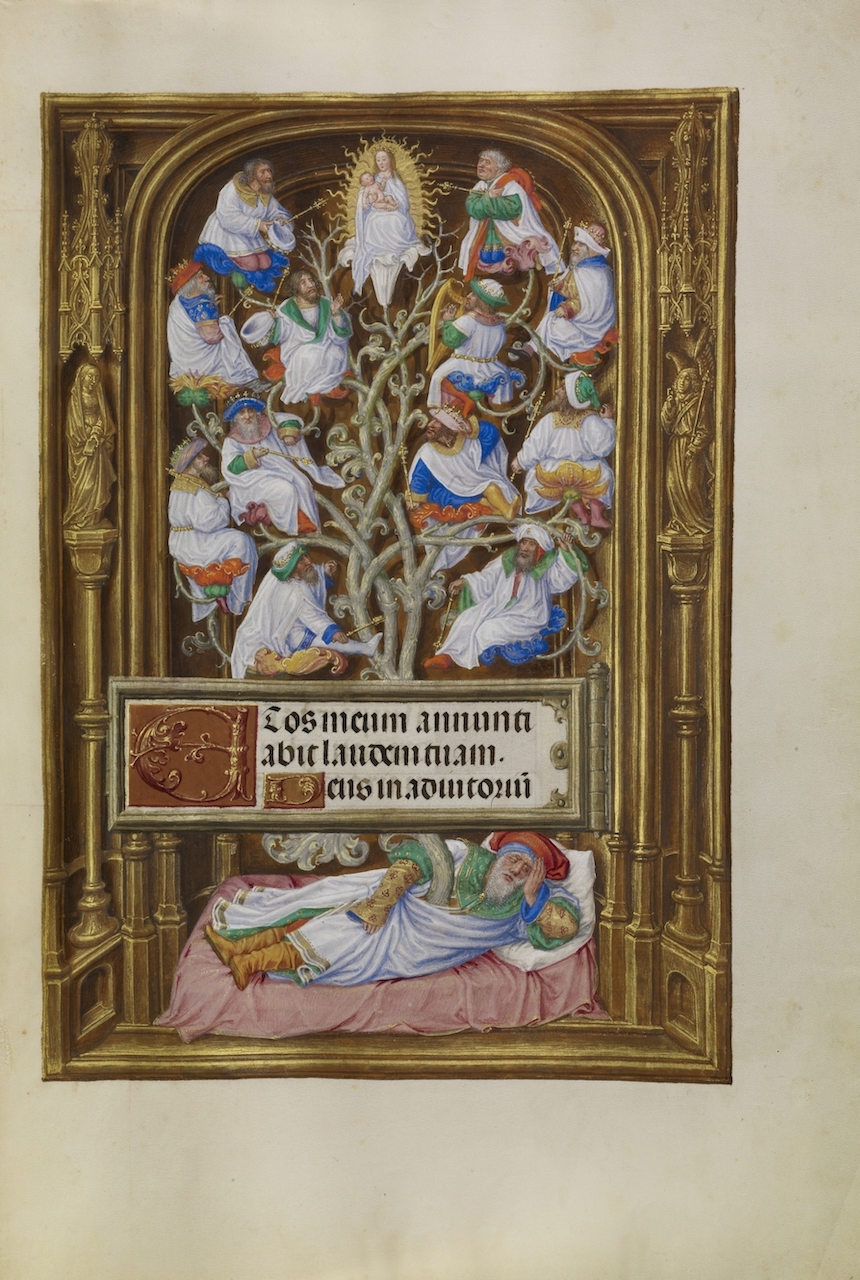 ET os meum annunti
abit laudem tuam.
Deus in adiutoriū